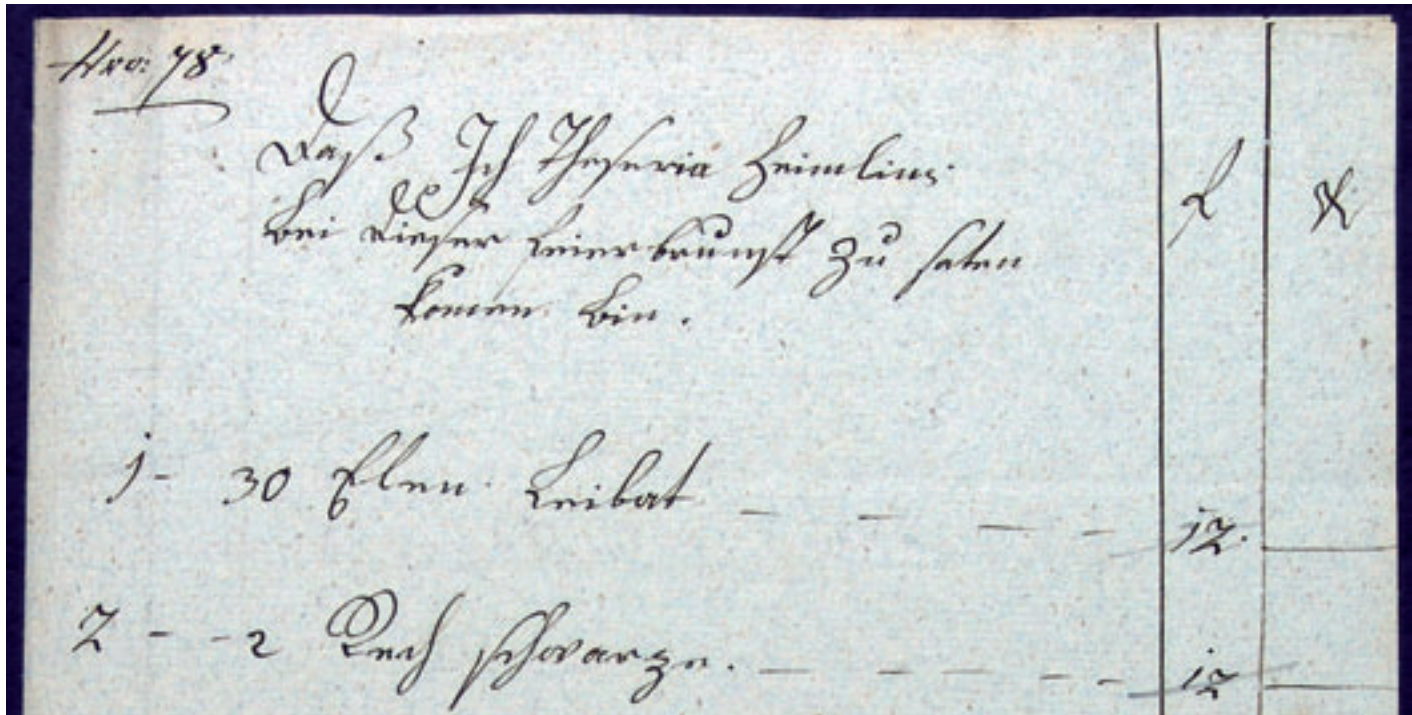 Nro: 78.
Daß Ich Theseria Heimlin:
bei dieser feierbrunst zu saten
komen bin.
f x
1- 30 Elen Leibat - - - - 12.
2 - - 2 Rech schwarze. - - - - 12